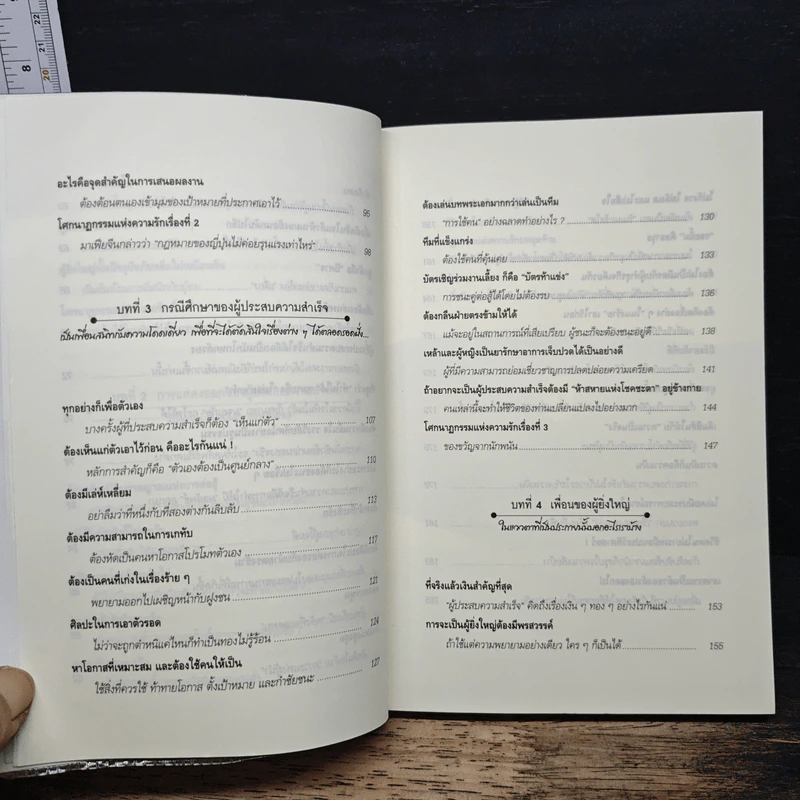 22
21
8
20
อะไรคือจุดสำคัญในการเสนอผลงาน
ต้องต้อนตนเองเข้ามุมของเป้าหมายที่ประกาศเอาไว้ 95
โศกนาฏกรรมแห่งความรักเรื่องที่ 2
มาเฟียจีนกล่าวว่า "กฎหมายของญี่ปุ่นไม่ค่อยรุนแรงเท่าไหร่" 98
บทที่ 3 กรณีศึกษาของผู้ประสบความสำเร็จ
เป็นเพื่อนสนิทกับความโดดเดี่ยว เพื่อที่จะได้ตัดสินใจเรื่องต่าง ๆ ได้ตลอดรอดฝั่ง...
ทุกอย่างก็เพื่อตัวเอง
บางครั้งผู้ที่ประสบความสำเร็จก็ต้อง "เห็นแก่ตัว" 107
ต้องเห็นแก่ตัวเอาไว้ก่อน คืออะไรกันแน่ !
หลักการสำคัญก็คือ "ตัวเองต้องเป็นศูนย์กลาง" 110
ต้องมีเล่ห์เหลี่ยม
อย่าลืมว่าที่หนึ่งกับที่สองต่างกันลิบลับ 113
ต้องมีความสามารถในการเกทับ
ต้องหัดเป็นคนหาโอกาสโปรโมทตัวเอง 117
ต้องเป็นคนที่เก่งในเรื่องร้าย ๆ
พยายามออกไปเผชิญหน้ากับฝูงชน 121
ศิลปะในการเอาตัวรอด
ไม่ว่าจะถูกตำหนิแค่ไหนก็ทำเป็นทองไม่รู้ร้อน 124
หาโอกาสที่เหมาะสม และต้องใช้คนให้เป็น
ใช้สิ่งที่ควรใช้ ท้าทายโอกาส ตั้งเป้าหมาย และกำชัยชนะ 127
ต้องเล่นบทพระเอกมากกว่าเล่นเป็นทีม
"การใช้คน" อย่างฉลาดทำอย่างไร ? 130
ทีมที่แข็งแกร่ง
ต้องใช้คนที่คุ้นเคย 133
บัตรเชิญร่วมงานเลี้ยง ก็คือ "บัตรท้าแข่ง"
การชนะคู่ต่อสู้ได้โดยไม่ต้องรบ 136
ต้องกลืนฝ่ายตรงข้ามให้ได้
แม้จะอยู่ในสถานการณ์ที่เสียเปรียบ ผู้ชนะก็จะต้องชนะอยู่ดี 138
เหล้าและผู้หญิงเป็นยารักษาอาการเจ็บปวดได้เป็นอย่างดี
ผู้ที่มีความสามารถย่อมเชี่ยวชาญการปลดปล่อยความเครียด 141
ถ้าอยากจะเป็นผู้ประสบความสำเร็จต้องมี "ห้าสหายแห่งโชคชะตา" อยู่ข้างกาย
คนเหล่านี้จะทำให้ชีวิตของท่านเปลี่ยนแปลงไปอย่างมาก 144
โศกนาฏกรรมแห่งความรักเรื่องที่ 3
ของขวัญจากนักพนัน 147
บทที่ 4 เพื่อนของผู้ยิ่งใหญ่
ในแววตาที่เป็นประกายนั้นบอกอะไรเราบ้าง
ที่จริงแล้วเงินสำคัญที่สุด
"ผู้ประสบความสำเร็จ" คิดถึงเรื่องเงิน ๆ ทอง ๆ อย่างไรกันแน่ 153
การจะเป็นผู้ยิ่งใหญ่ต้องมีพรสวรรค์
ถ้าใช้แต่ความพยายามอย่างเดียว ใคร ๆ ก็เป็นได้ 155